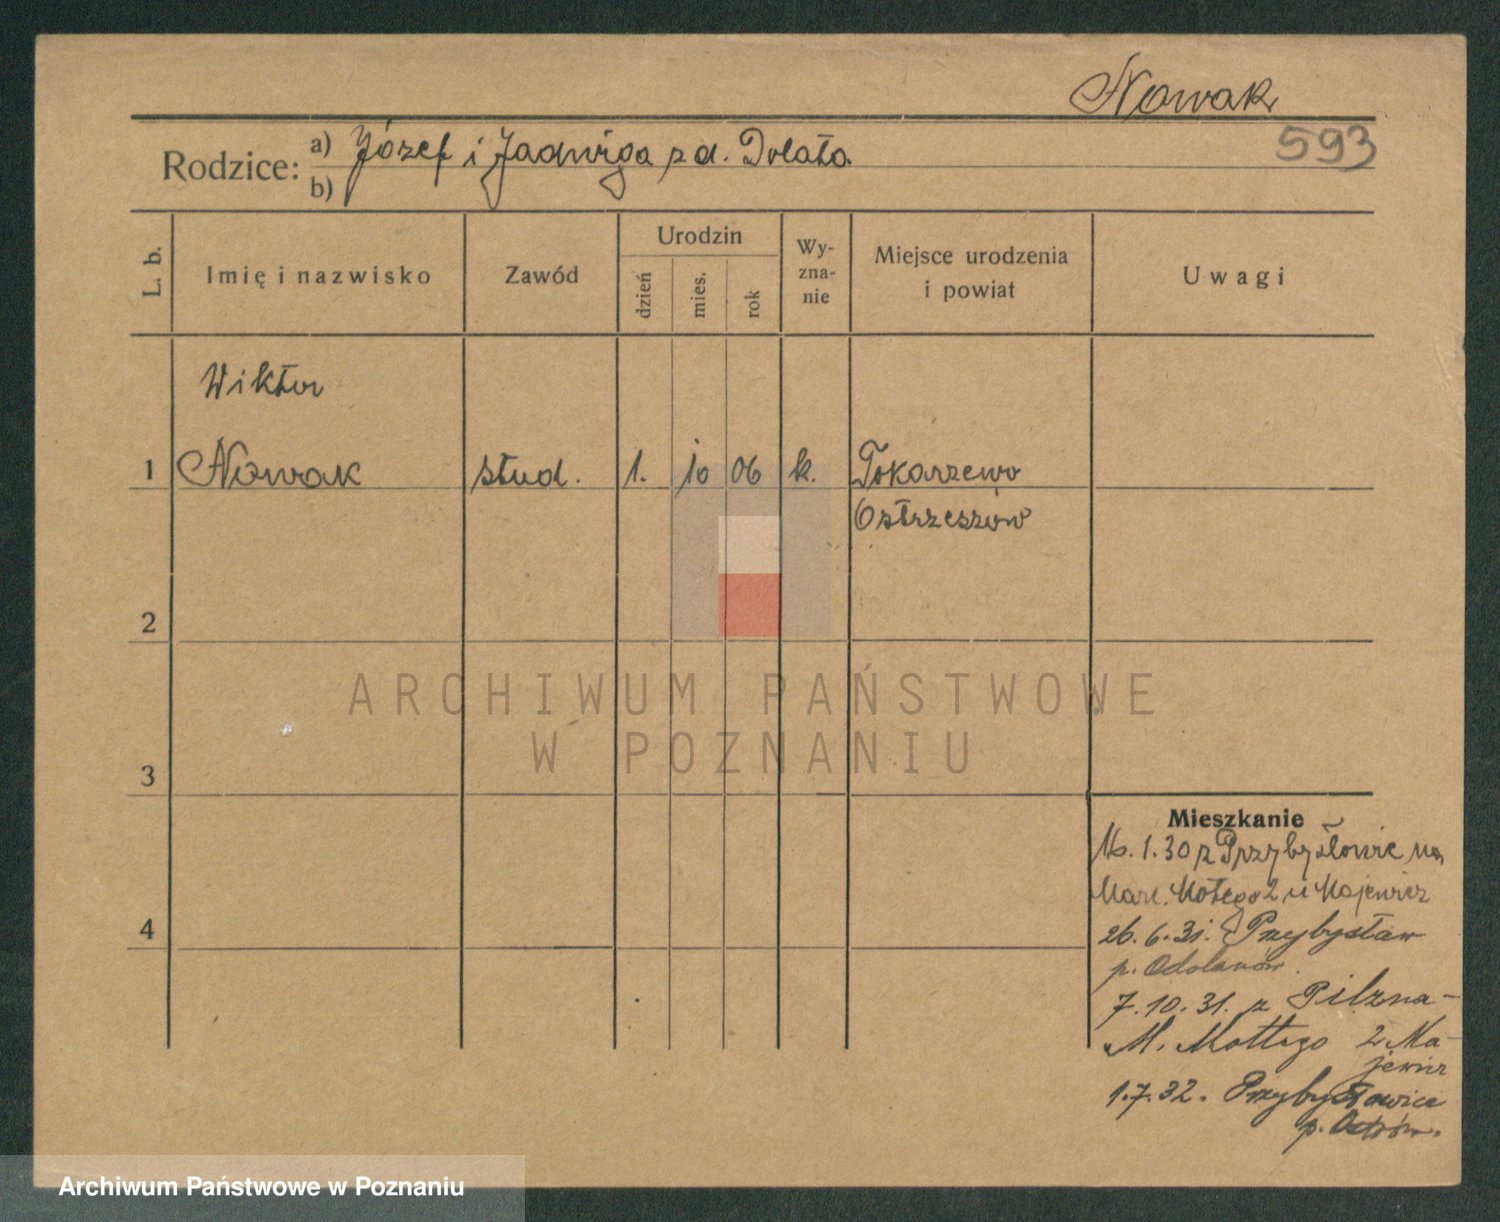 Nowak
593
Rodzice: a) Józef i Jadwiga z d. Dolata
b)
L. b.
Imię i nazwisko
Zawód
Urodzin
dzień
mies.
rok
Wy-
zna-
nie
Miejsce urodzenia
i powiat
Uwagi
Wiktor
1 Nowak stud. 1. 10 06 k. Tokarzewo
Ostrzeszów
2
3
4
ARCHIWUM PAŃSTWOWE
W POZNANIU
Mieszkanie
1.30 z Przybysłowic na
Marc. Motego 2 u Majewicz
26.6.31. Przybysław
p. Odolanów.
7.10.31. z Pilzna-
M. Mottego 2 Ma-
jewicz
1.7.32. Przybysławice
p. Ostrów.
Archiwum Państwowe w Poznaniu